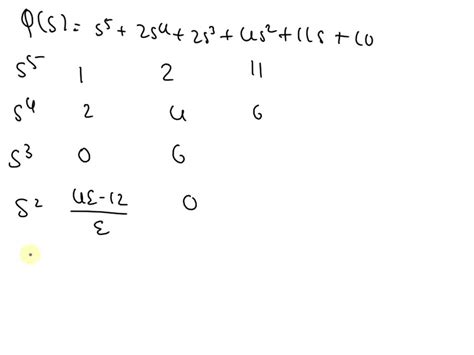 P(s) = s⁵ + 2s⁴ + 2s³ + 4s² + 11s + 10
s⁵ 1 2 11
s⁴ 2 4 6
s³ 0 6
s² (4ε-12)/ε 0